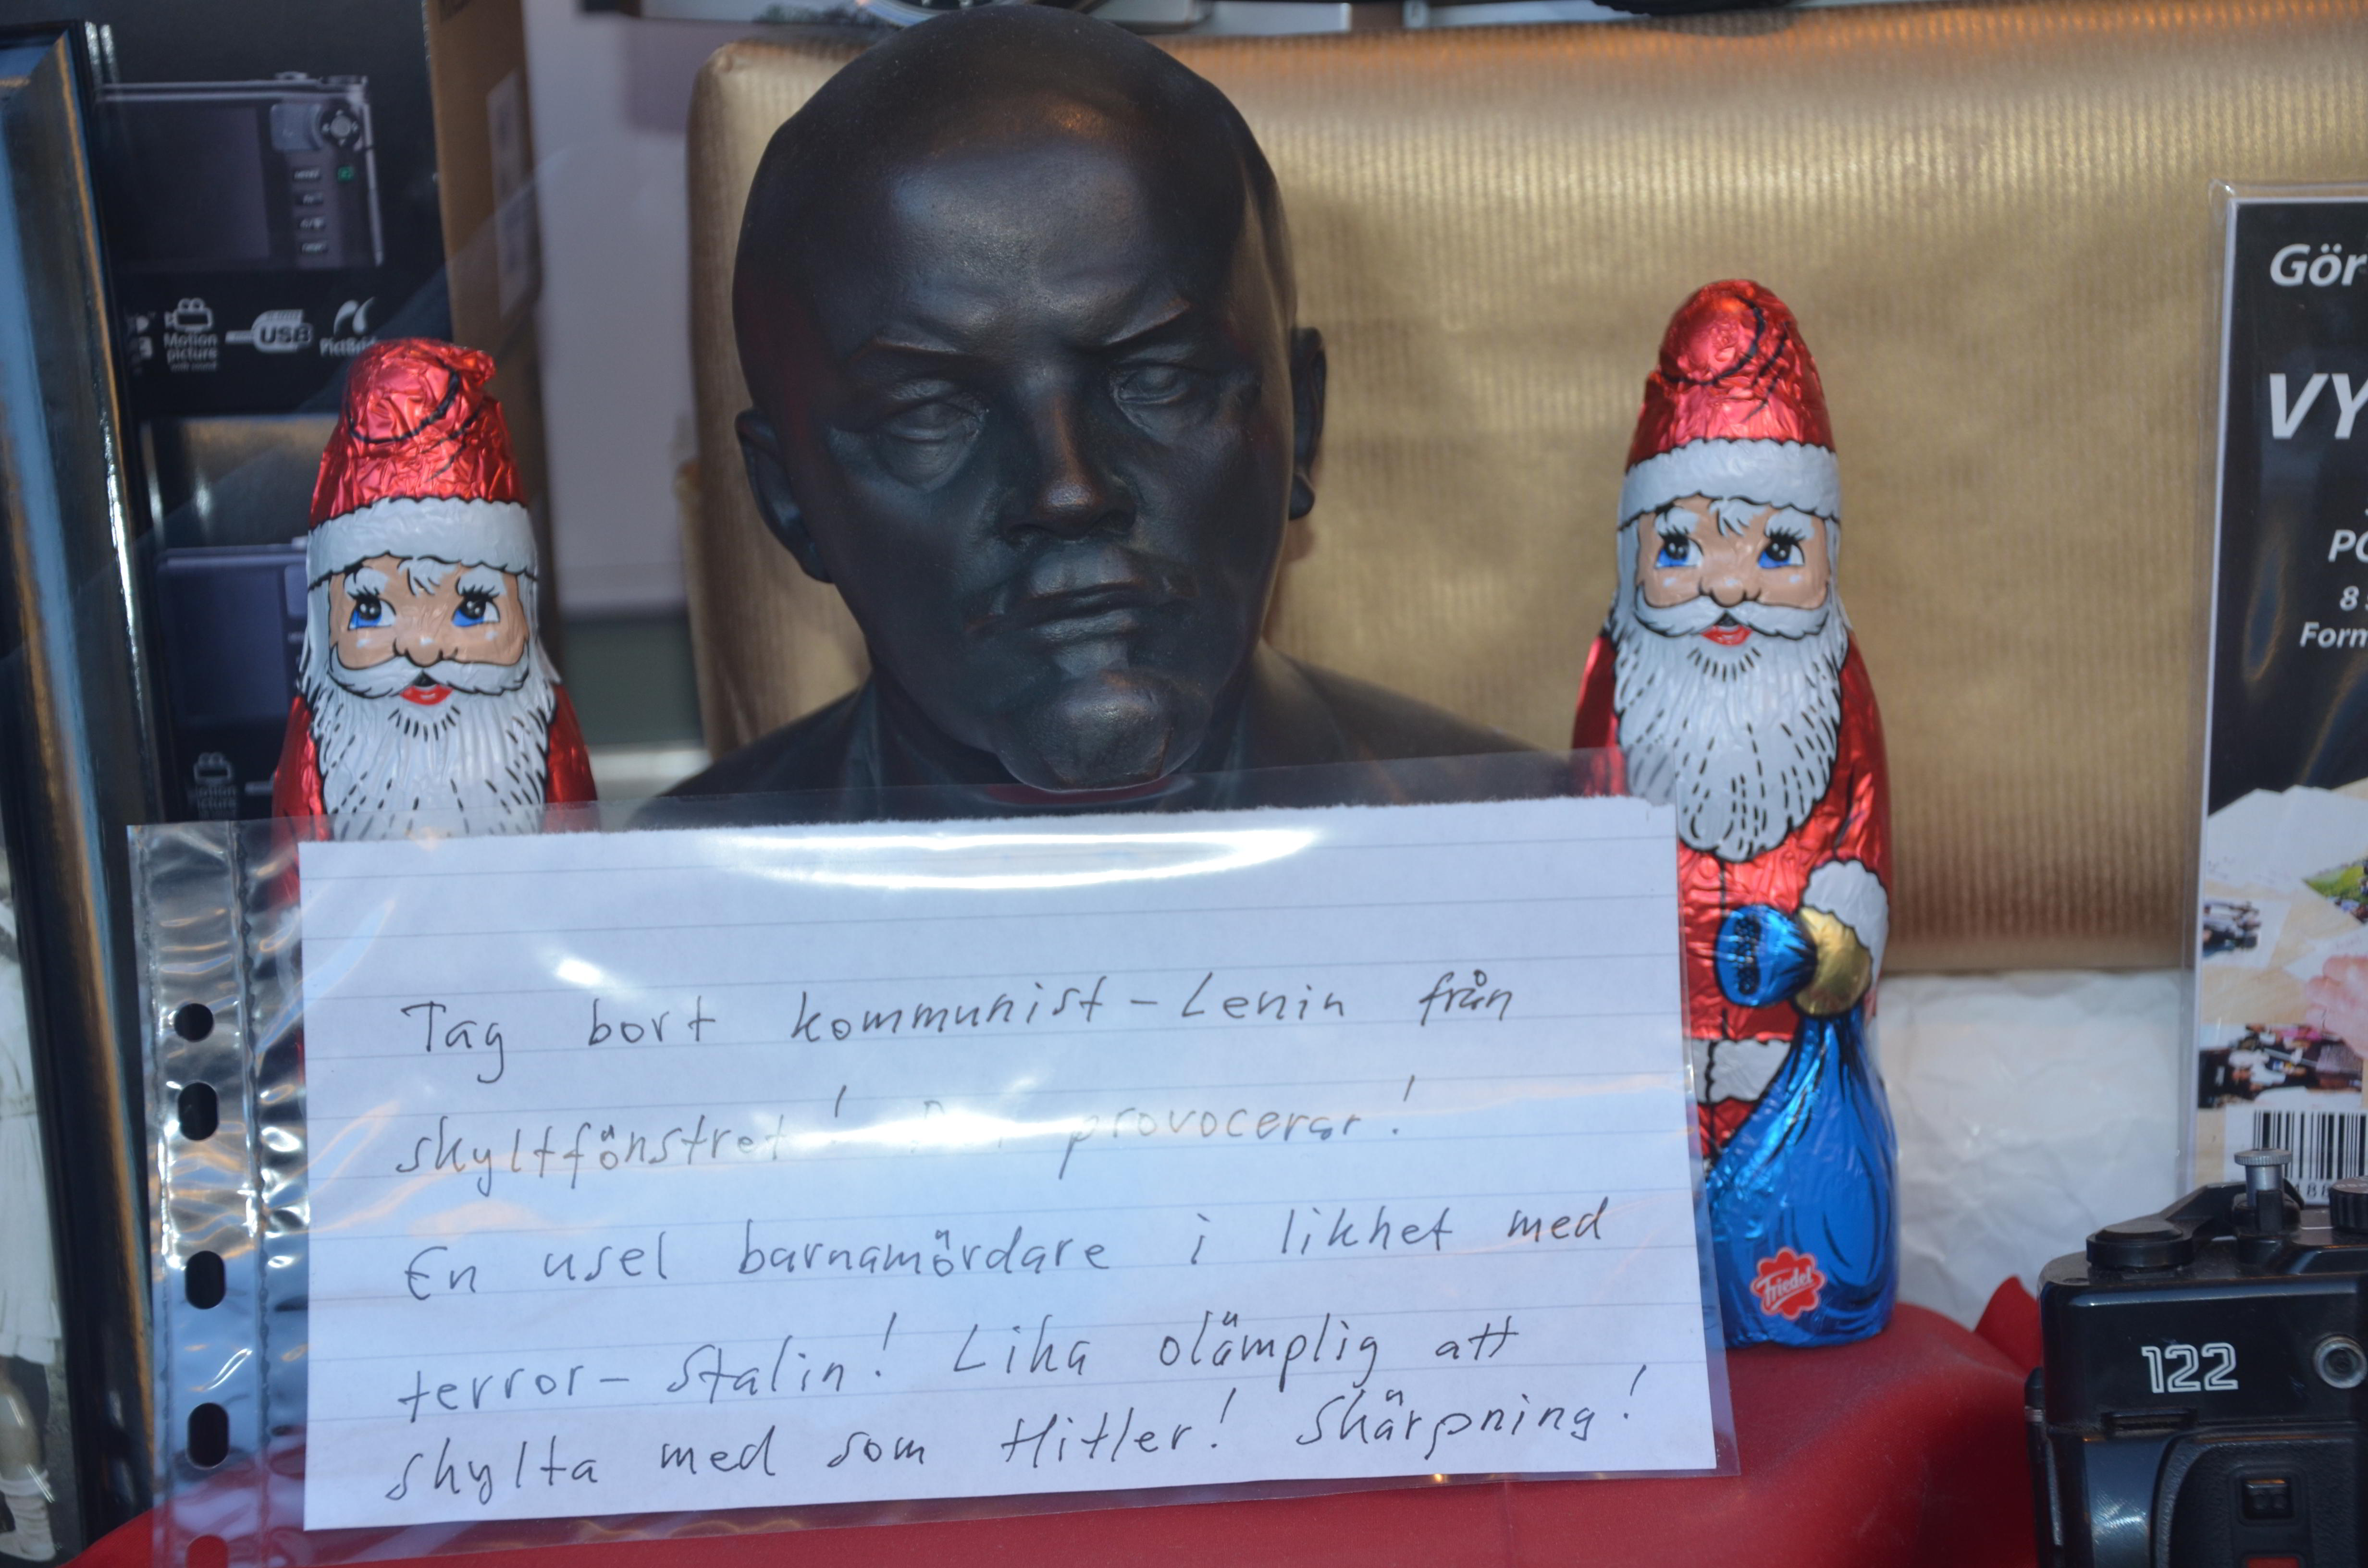 Motion
picture
USB
PictBridge
Motion
Picture
Gör
VY
PO
8
Form
Tag bort kommunist – Lenin från
skyltfönstret! provocerar!
En usel barnamördare i likhet med
terror – Stalin! Lika olämplig att
skylta med som Hitler! Skärpning!
Friedel
122